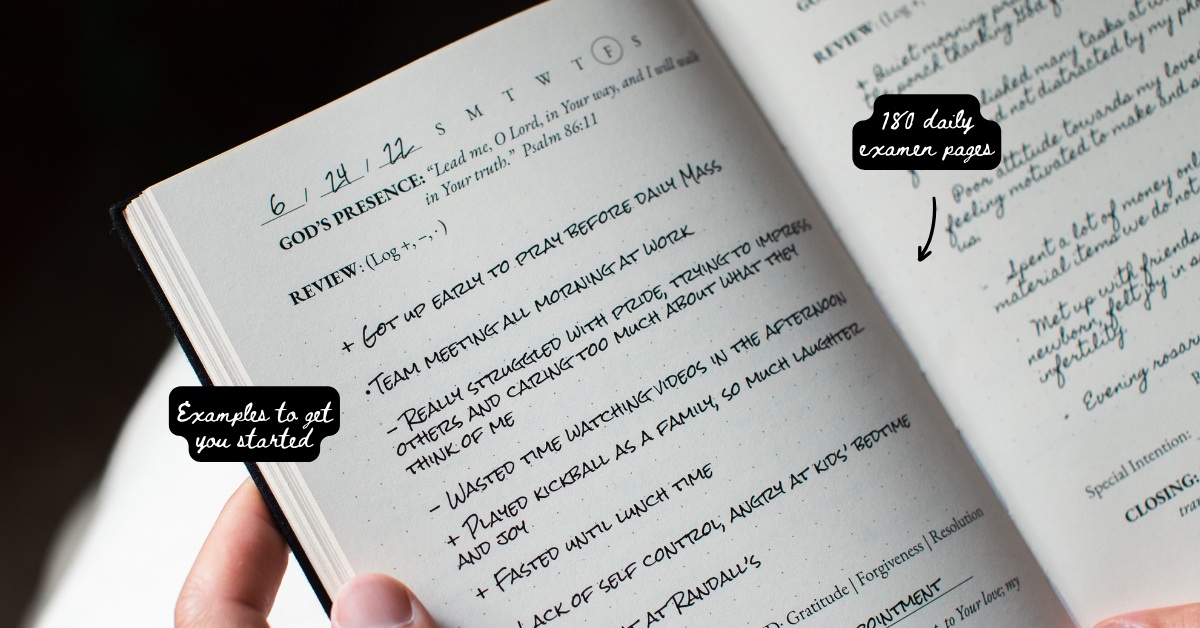 6 / 24 / 22 S M T W T F S
GOD'S PRESENCE: "Lead me, O Lord, in Your way, and I will walk
in Your truth." Psalm 86:11
REVIEW: (Log +, –, · )
+ GOT UP EARLY TO PRAY BEFORE DAILY MASS
· TEAM MEETING ALL MORNING AT WORK
– REALLY STRUGGLED WITH PRIDE, TRYING TO IMPRESS
OTHERS AND CARING TOO MUCH ABOUT WHAT THEY
THINK OF ME
– WASTED TIME WATCHING VIDEOS IN THE AFTERNOON
+ PLAYED KICKBALL AS A FAMILY, SO MUCH LAUGHTER
AND JOY
+ FASTED UNTIL LUNCH TIME
LACK OF SELF CONTROL, ANGRY AT KIDS' BEDTIME
AT RANDALL'S
Gratitude | Forgiveness | Resolution
to Your love; my
Examples to get
you started
REVIEW: (Log +,
+ Quiet morning
the porch thanking God
many tasks at
not distracted by my
Poor attitude towards my
feeling motivated to make and
us.
- Spent a lot of money
material items we do not
Met up with friends
newborn, felt joy in
infertility.
· Evening
Special Intention:
CLOSING:
180 daily
examen pages